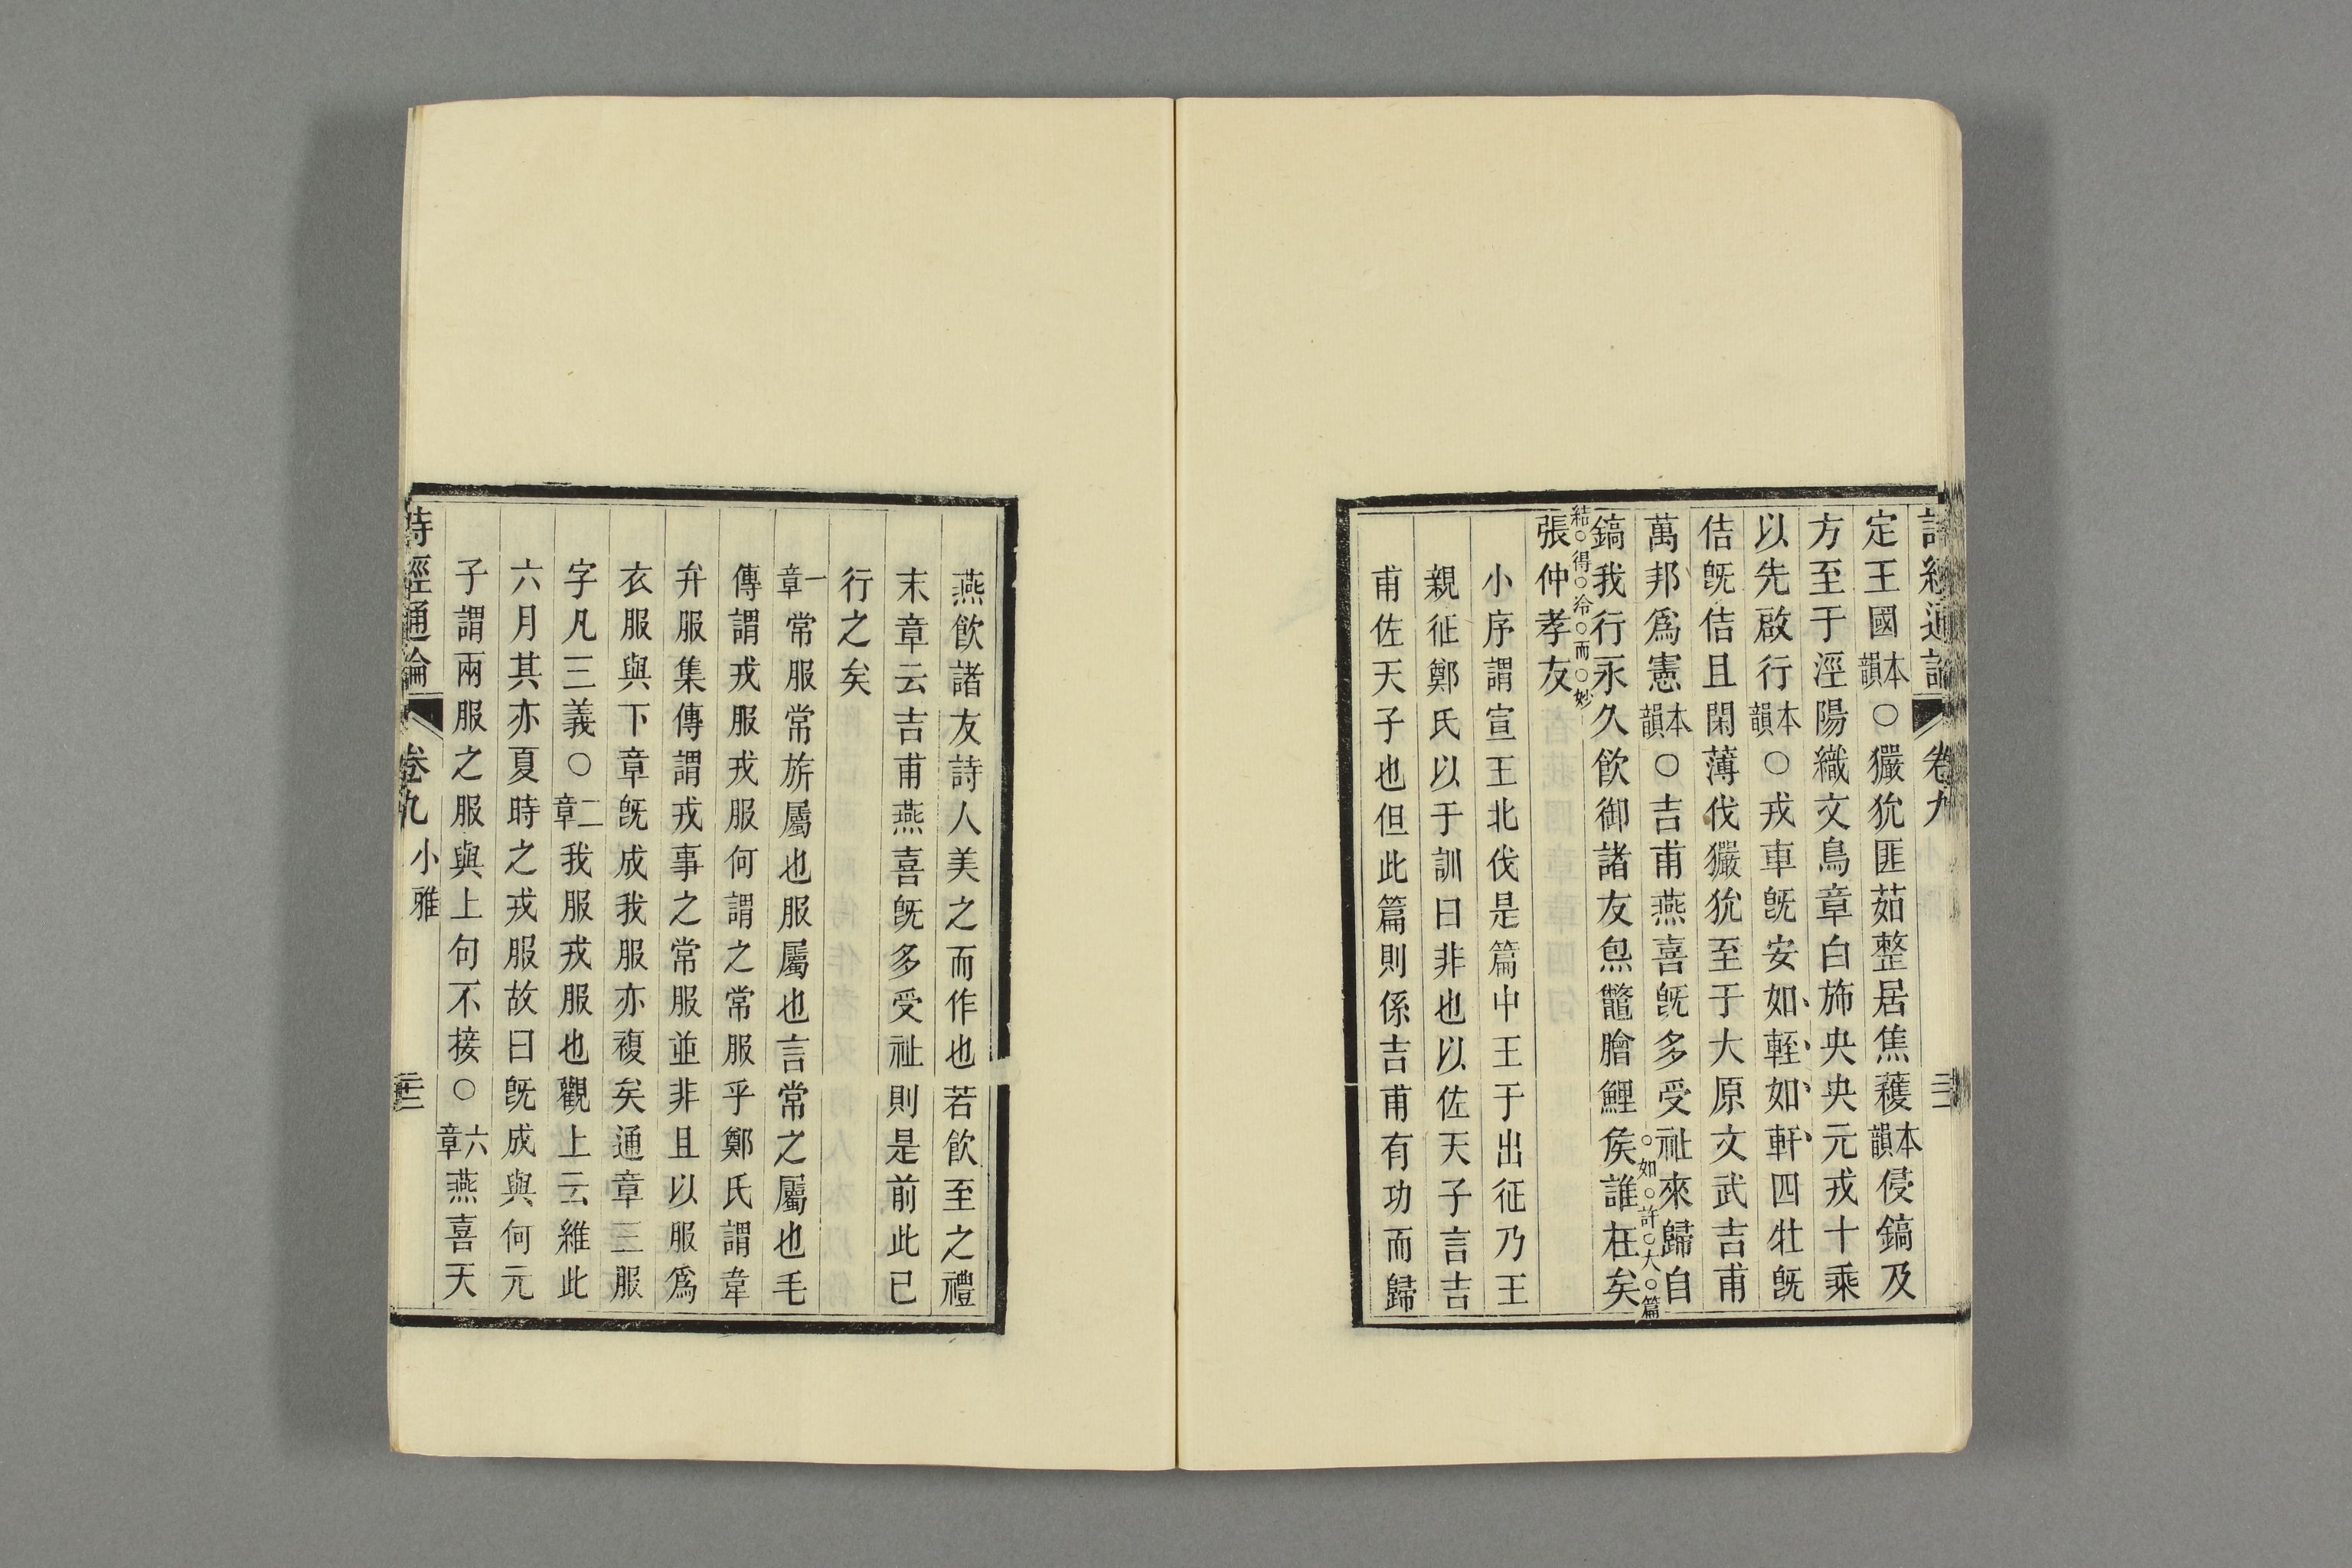 詩經通論 卷九
定王國本韻○玁狁匪茹整居焦穫本韻侵鎬及
方至于涇陽織文鳥章白斾央央元戎十乘
以先啟行本韻○戎車旣安如輊如軒四牡旣
佶旣佶且閑薄伐玁狁至于大原文武吉甫
萬邦爲憲本韻○吉甫燕喜旣多受祉來歸自
如許大篇
鎬我行永久飲御諸友炰鼈膾鯉矦誰在矣
結得冷而妙
張仲孝友
小序謂宣王北伐是篇中王于出征乃王
親征鄭氏以于訓曰非也以佐天子言吉
甫佐天子也但此篇則係吉甫有功而歸
燕飲諸友詩人美之而作也若飲至之禮
末章云吉甫燕喜旣多受祉則是前此已
行之矣
一章常服常旂屬也服屬也言常之屬也毛
傳謂戎服戎服何謂之常服乎鄭氏謂韋
弁服集傳謂戎事之常服並非且以服爲
衣服與下章旣成我服亦複矣通章三服
字凡三義○二章我服戎服也觀上云維此
六月其亦夏時之戎服故曰旣成與何元
子謂兩服之服與上句不接○六章燕喜天
詩經通論 卷九 小雅